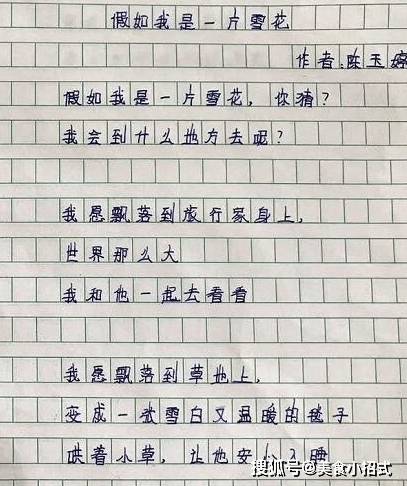 假如我是一片雪花
作者:陈玉婷
假如我是一片雪花，你猜?
我会到什么地方去呢?
我愿飘落到旅行家身上，
世界那么大
我和他一起去看看
我愿飘落到草地上，
变成一张雪白又温暖的毯子
哄着小草，让他安心入睡
搜狐号@美食小招式